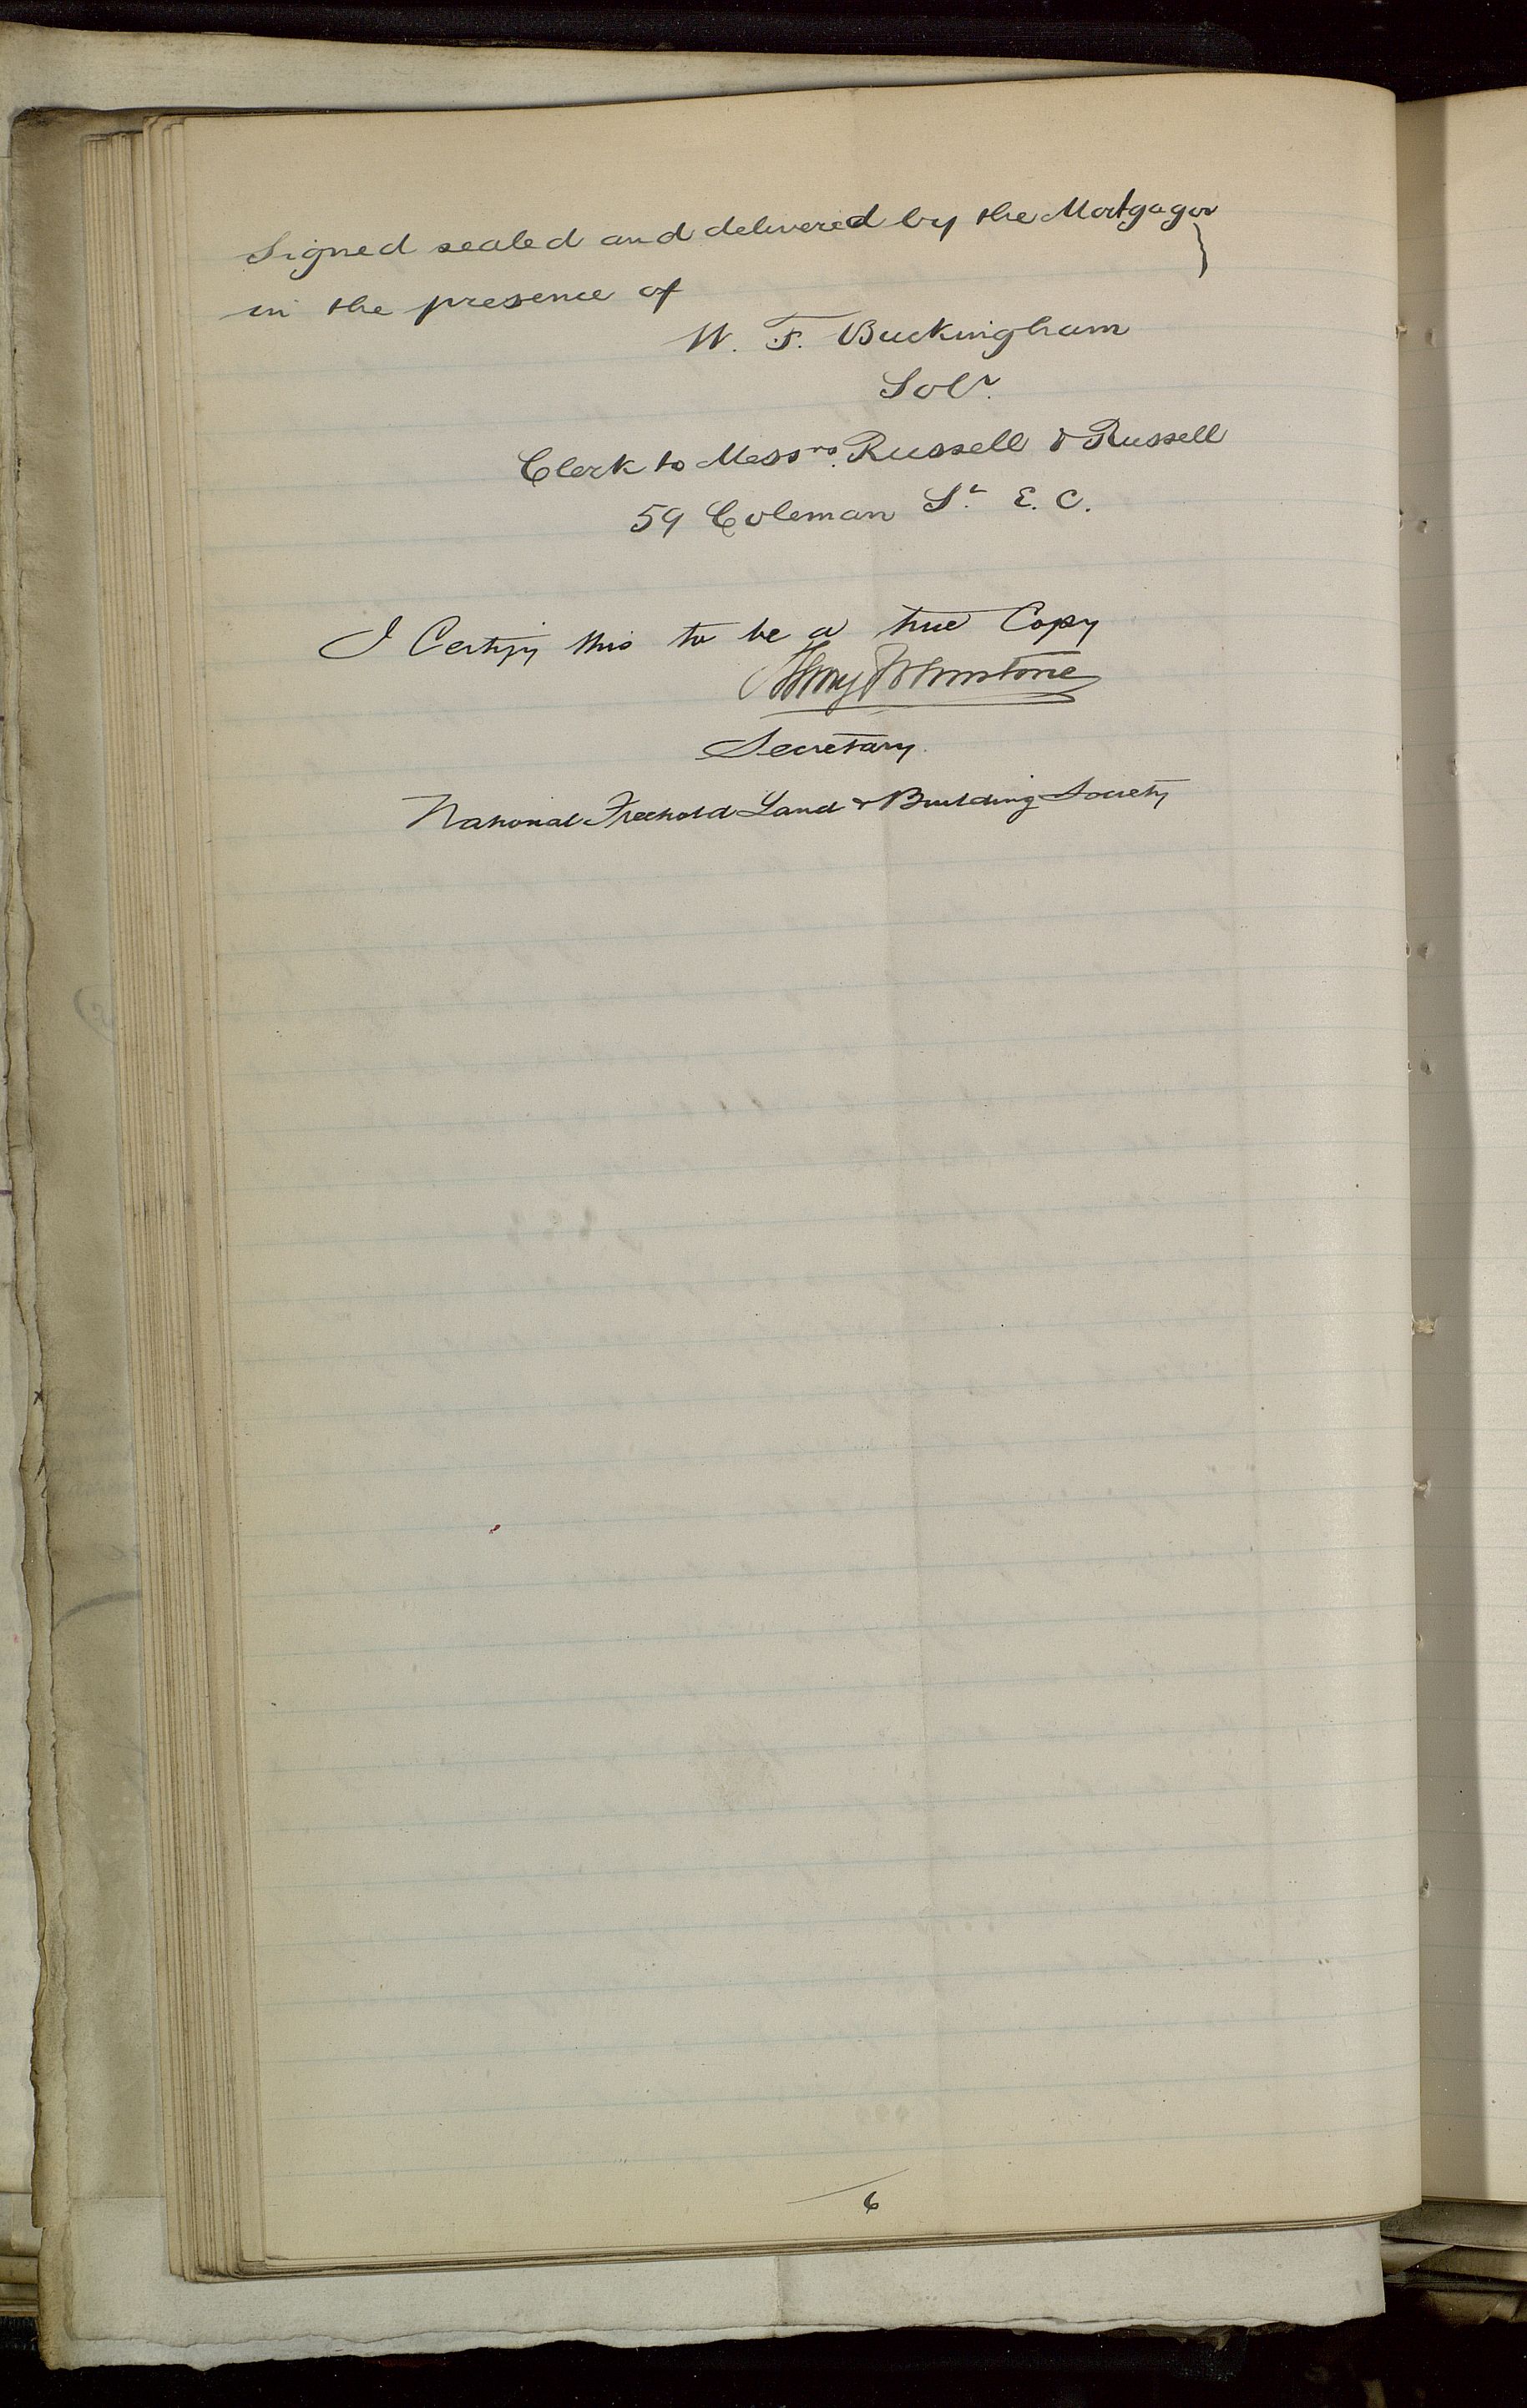 Signed sealed and delivered by the Mortgagor }
in the presence of
W. F. Buckingham
Solr.
Clerk to Messrs. Russell & Russell
59 Coleman St. E. C.
I Certify this to be a true Copy
Johnstone
Secretary.
National Freehold Land & Building Society
6